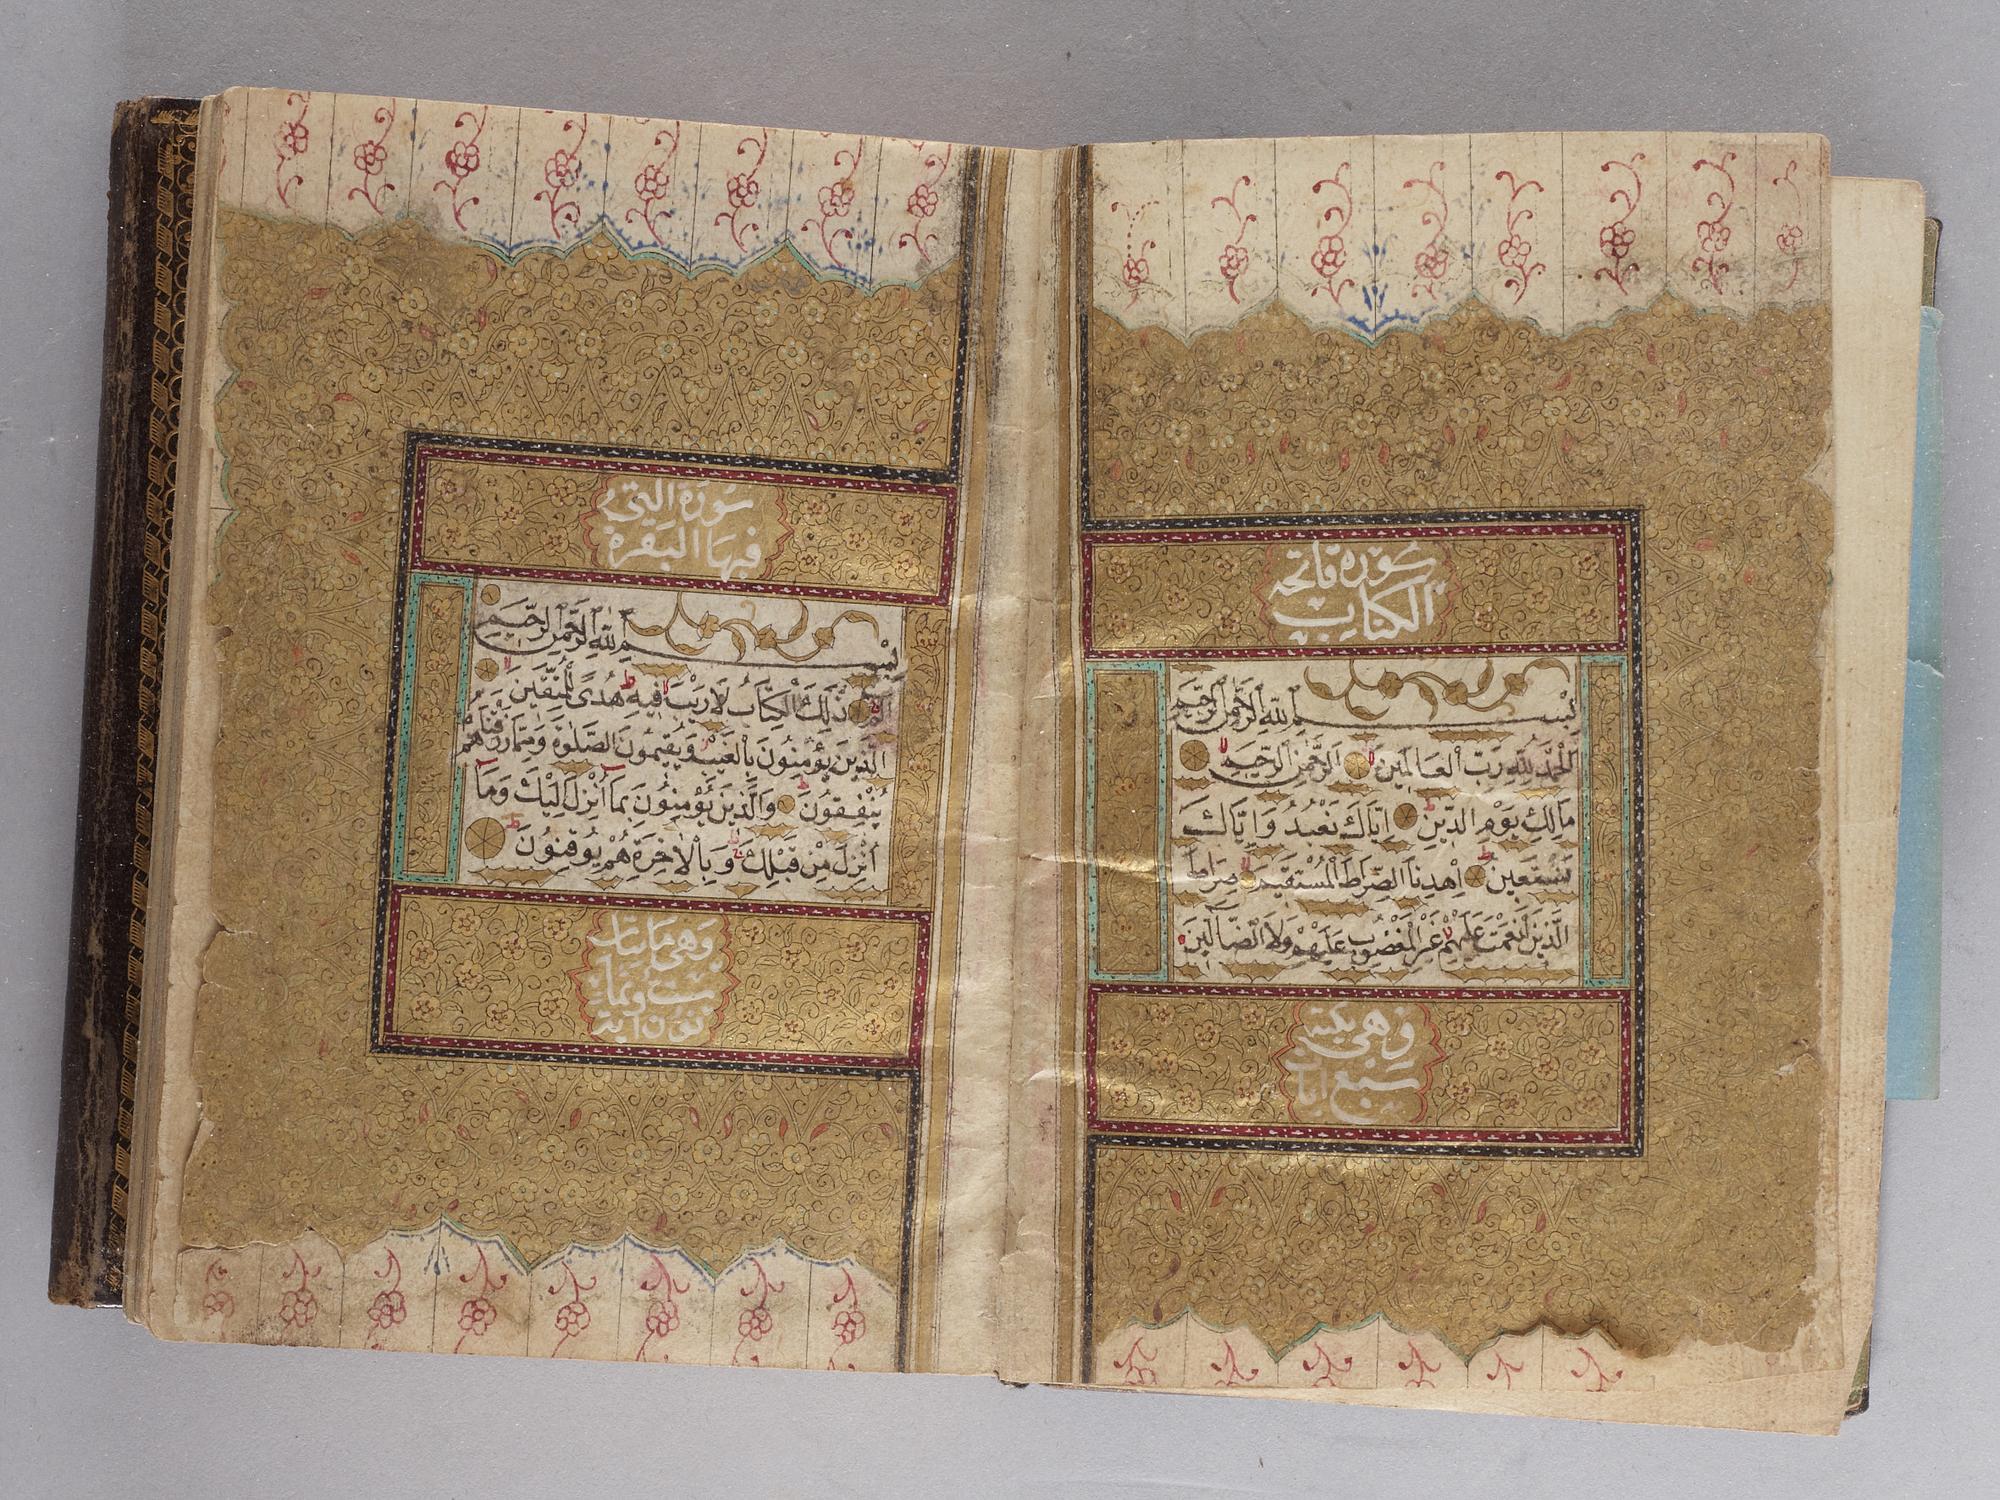 سورة فاتحة
الكتاب
بِسْمِ اللّٰهِ الرَّحْمٰنِ الرَّحِيمِ
اَلْحَمْدُ لِلّٰهِ رَبِّ الْعَالَمِينَ لا اَلرَّحْمٰنِ الرَّحِيمِ لا
مَالِكِ يَوْمِ الدِّينِ ط اِيَّاكَ نَعْبُدُ وَاِيَّاكَ
نَسْتَعِينُ ط اِهْدِنَا الصِّرَاطَ الْمُسْتَقِيمَ لا صِرَاطَ
الَّذِينَ اَنْعَمْتَ عَلَيْهِمْ غَيْرِ الْمَغْضُوبِ عَلَيْهِمْ وَلَا الضَّالِّينَ
وهي مكية
سبع ايات
سورة التي
فيها البقرة
بِسْمِ اللّٰهِ الرَّحْمٰنِ الرَّحِيمِ
الٓمٓ ذٰلِكَ الْكِتَابُ لَا رَيْبَ فِيهِ هُدًى لِلْمُتَّقِينَ لا
الَّذِينَ يُؤْمِنُونَ بِالْغَيْبِ وَيُقِيمُونَ الصَّلٰوةَ وَمِمَّا رَزَقْنَاهُمْ
يُنْفِقُونَ ط وَالَّذِينَ يُؤْمِنُونَ بِمَا اُنْزِلَ اِلَيْكَ وَمَا
اُنْزِلَ مِنْ قَبْلِكَ وَبِالْاٰخِرَةِ هُمْ يُوقِنُونَ ط
وهي مايتان
ست وثما
نون اية